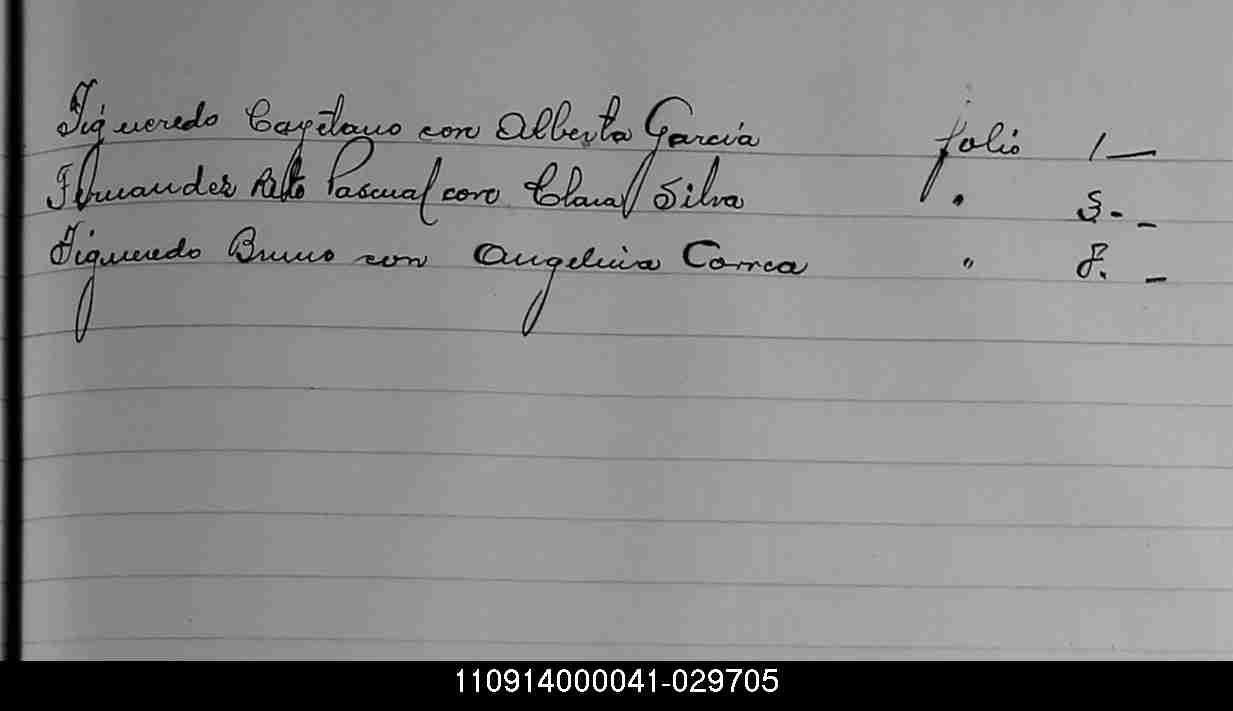 Figueredo Cayetano con Alberta García folio 1 —
Fernandez Pascual con Clara Silva " 5. -
Figueredo Bruno con Angelina Correa " 8. -
110914000041-029705